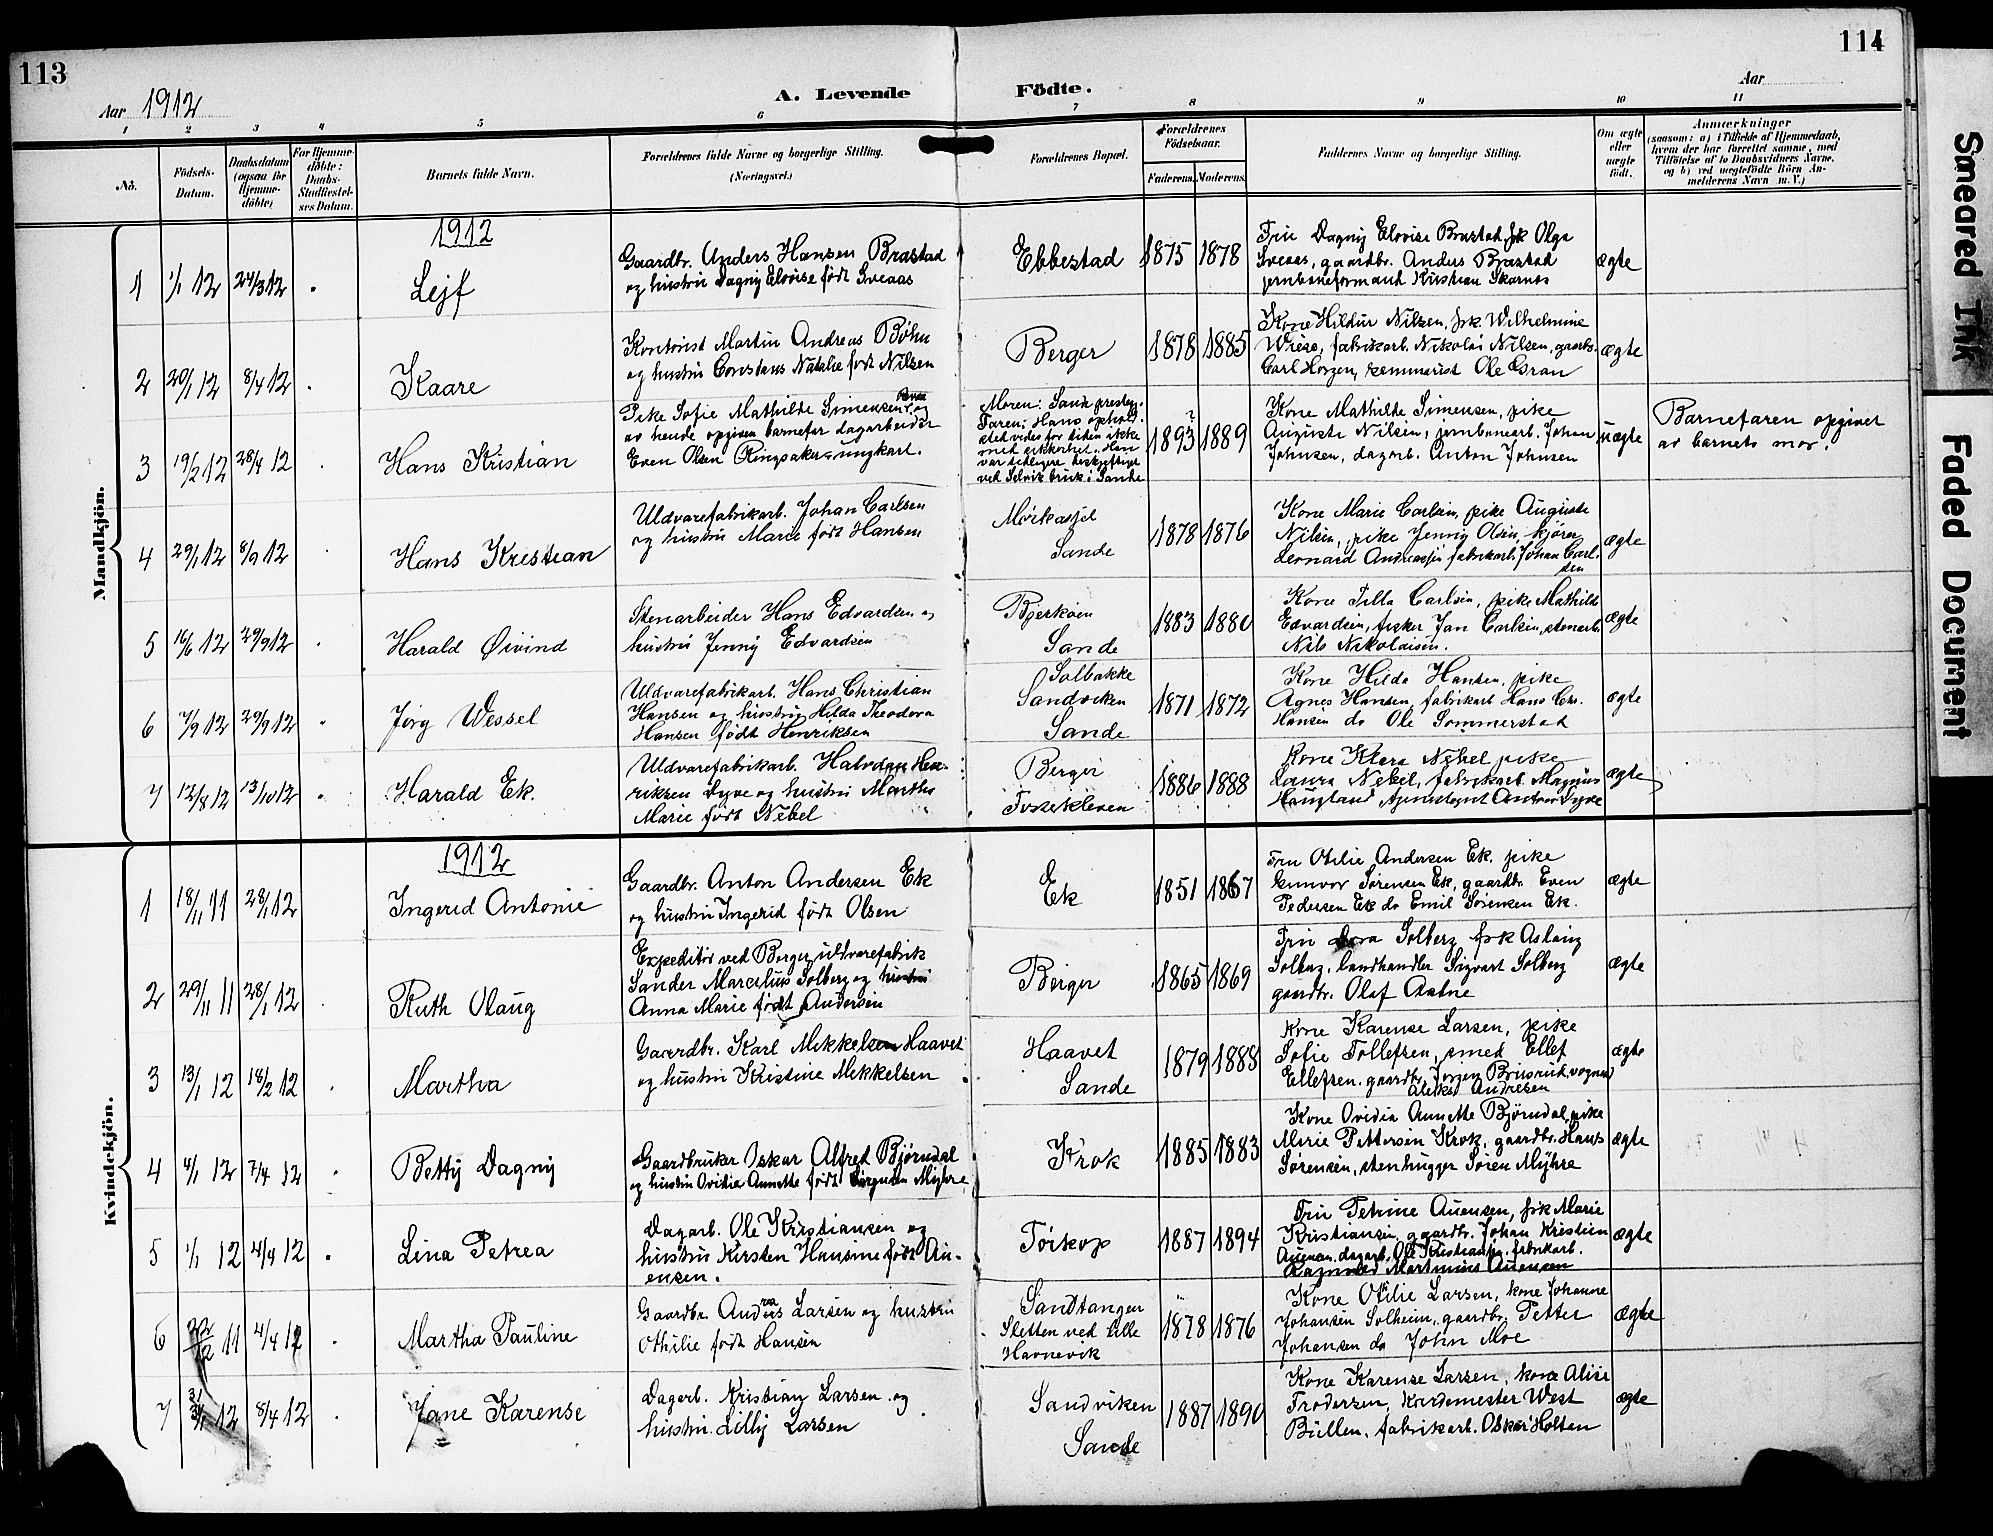 113
114
Aar 1912
A. Levende
Födte.
Aar
1 2 3 4 5 6 7 8 9 10 11
No.
Födsels-
Datum.
Daabsdatum
(ogsaa for
Hjemme-
döbte)
For Hjemme-
döbte:
Daabs-
Stadfæstel-
ses Datum.
Barnets fulde Navn.
Forældrenes fulde Navne og borgerlige Stilling.
(Næringsvei.)
Forældrenes Bopæl.
Forældrenes
Födselsaar.
Faderens. Moderens.
Faddernes Navne og borgerlige Stilling.
Om ægte
eller
uægte
födt.
Anmærkninger
(saasom: a) i Tilfælde af Hjemmedaab,
hvem der har forrettet samme, med
Tilföielse af to Daabsvidners Navne.
og b) ved uægtefödte Börn An-
melderens Navn m. V.)
Mandkjön.
1912
1
1/1 12
24/3 12
Lejf
Gaardbr. Anders Hansen Brastad
og hustru Dagny Elovise født Sveaas
Ebbestad
1875 1878
Fru Dagny Elovise Brastad frk Olga
Sveaas, gaardbr. Anders Brastad
jernbaneformand Kristian Skarnes
ægte
2
20/1 12
8/4 12
Kaare
Kontorist Martin Andreas Bøhn
og hustru Constans Natalie født Nilsen
Berger
1878 1885
Kone Hildur Nilsen, frk. Wilhelmine
Wiese, fabrikarb. Nikolai Nilsen, gaarbr.
Carl Horgen, Ole Gran
ægte
3
19/2 12
28/4 12
Hans Kristian
Pike Sofie Mathilde Simensen og
av hende opgiven barnefar dagarbeider
Even Olsen Ringsaker - ungkarl.
Moren: Sande prestegj.
Faren: Hans opholds-
sted vides for tiden ikke
med sikkerhet. Han
var tidligere beskjeftiget
ved Selvik bruk i Sande
?
1893 1889
Kone Mathilde Simensen, pike
Auguste Nilsen, jernbanearb. Johan
Johnsen, dagarb. Anton Johnsen
uægte
Barnefaren opgivet
av barnets mor.
4
29/1 12
8/9 12
Hans Kristian
Uldvarefabrikarb. Johan Carlsen
og hustru Marie født Hansen
Sande
1878 1876
Kone Marie Carlsen, pike Auguste
Nilsen, pike Jenny Olsen, kjører
Leonard Andreassen fabrikarb. Johan Carl-
sen
ægte
5
16/6 12
29/9 12
Harald Øivind
Stenarbeider Hans Edvardsen og
hustru Jenny Edvardsen
Bjerkøen
Sande
1883 1880
Kone Tilla Carlsen, pike Mathilde
Edvardsen, fisker Jan Carlsen, stenarb.
Nils Nikolaisen.
ægte
6
7/9 12
29/9 12
Jörg Wessel
Uldvarefabrikarb. Hans Christian
Hansen og hustru Hilda Theodora
Hansen født Henriksen
Solbakke
Sandviken
Sande
1871 1872
Kone Hilda Hansen, pike
Agnes Hansen, fabrikarb Hans Chr.
Hansen do Ole Sommerstad
ægte
7
12/8 12
13/10 12
Harald Ek.
Uldvarefabrikarb. Halvdan Hen-
riksen Dyve og hustru Martha
Marie født Nebel
Berger
Fossekleven
1886 1888
Kone Klara Nebel pike
Laura Nebel, fabrikarb. Magnus
Haugland
ægte
Kvindekjön.
1912
1
18/11 11
28/1 12
Ingerid Antonie
Gaardbr. Anton Andersen Ek
og hustru Ingerid født Olsen
Ek
1851 1867
Fru Otilie Andersen Ek. pike
Gunvor Sørensen Ek, gaardbr. Even
Pedersen Ek do Emil Sørensen Ek.
ægte
2
29/11 11
28/1 12
Ruth Olaug
Expeditør ved Berger uldvarefabrik
Sander Marcelius Solberg og hustru
Anna Marie født Andersen
Berger
1865 1869
Fru Dora Solberg frk Aslaug
Solberg, landhandler Sigvart Solberg
gaardbr. Olaf Aatne
ægte
3
13/1 12
18/2 12
Martha
Gaardbr. Karl Mikkelsen Haavet
og hustru Kristine Mikkelsen
Haavet
Sande
1879 1888
Kone Karense Larsen, pike
Sofie Tollefsen, smed Ellef
Ellefsen. gaardbr. Jørgen Brusrud,
Andresen
ægte
4
4/1 12
7/4 12
Betty Dagny
Gaardbruker Oskar Alfred Bjørndal
og hustru Ovidia Annette født Myhre
Krok
1885 1883
Kone Ovidia Annette Bjørndal, pike
Marie Pettersen Krok, gaardbr. Hans
Sørensen, stenhugger Søren Myhre
ægte
5
1/1 12
4/4 12
Lina Petrea
Dagarb. Ole Kristiansen og
hustru Kirsten Hansine født Au-
ensen.
Tørkop
1887 1894
Fru Petrine Auensen, frk Marie
Kristiansen, gaardbr. Johan Kristian
Auensen, dagarb. Ole Kristiansen. fabrikarb.
Martinius Auensen
ægte
6
11
4/4 12
Martha Pauline
Gaardbr. Andreas Larsen og hustru
Othilie født Hansen
Sandtangen
Sletten ved Lille
Havnevik
1878 1876
Kone Otilie Larsen, kone Johanne
Johansen Solheim, gaardbr. Petter
Johansen do John Moe
ægte
7
12
8/4 12
Jane Karense
Dagarb. Kristian Larsen og
hustru Lilly Larsen
Sandviken
Sande
1887 1890
Kone Karense Larsen, kone Alise
Frodersen, Kardemester West
Büllen, fabrikarb. Oskar Holten
ægte
Smeared Ink
Faded Document